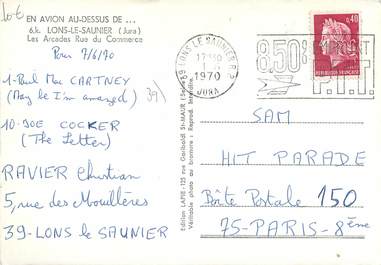 10€
EN AVION AU-DESSUS DE ...
6.k. LONS-LE-SAUNIER (Jura)
Les Arcades Rue du Commerce
Pour 7/6/70
1-Paul Mac CARTNEY
(May be I'm amazed)
39
10-JOE COCKER
(The Letter)
RAVIER Christian
5, rue des Mouillères
39-LONS le SAUNIER
Edition LAPIE-125 rue Garibaldi St-MAUR (Seine)
Véritable photo au bromure : Reprod. Interdite.
39 LONS LE SAUNIER R.P.
17H30
1970
JURA
0,40
REPUBLIQUE FRANÇAISE
8.50
P.T.T.
SAM
HIT PARADE
Boîte Postale 150
75-PARIS-8ème